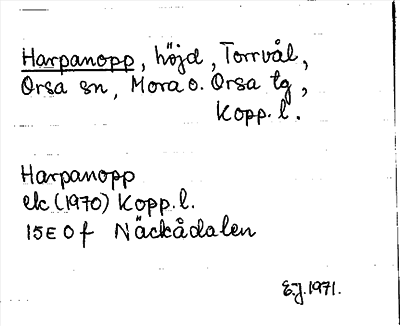 Harpanopp, höjd, Torrvål,
Orsa sn, Mora o. Orsa tg,
Kopp. l.
Harpanopp
ek (1970) Kopp. l.
15E 0f Näckådalen
E.J. 1971.